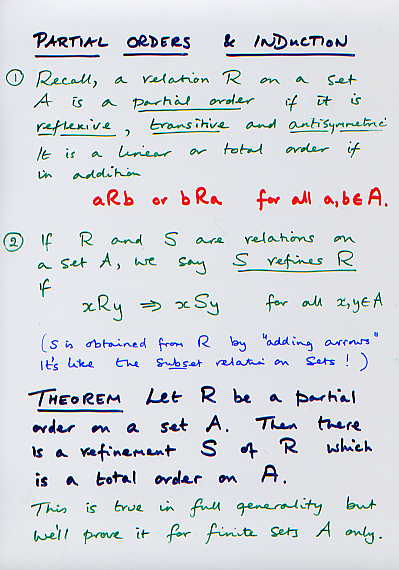 PARTIAL ORDERS & INDUCTION
① Recall, a relation R on a set
A is a partial order if it is
reflexive, transitive and antisymmetric
It is a linear or total order if
in addition
aRb or bRa for all a,b∈A.
② If R and S are relations on
a set A, we say S refines R
if
xRy ⇒ xSy for all x,y∈A
(S is obtained from R by "adding arrows"
It's like the subset relation on sets!)
THEOREM Let R be a partial
order on a set A. Then there
is a refinement S of R which
is a total order on A.
This is true in full generality but
we'll prove it for finite sets A only.